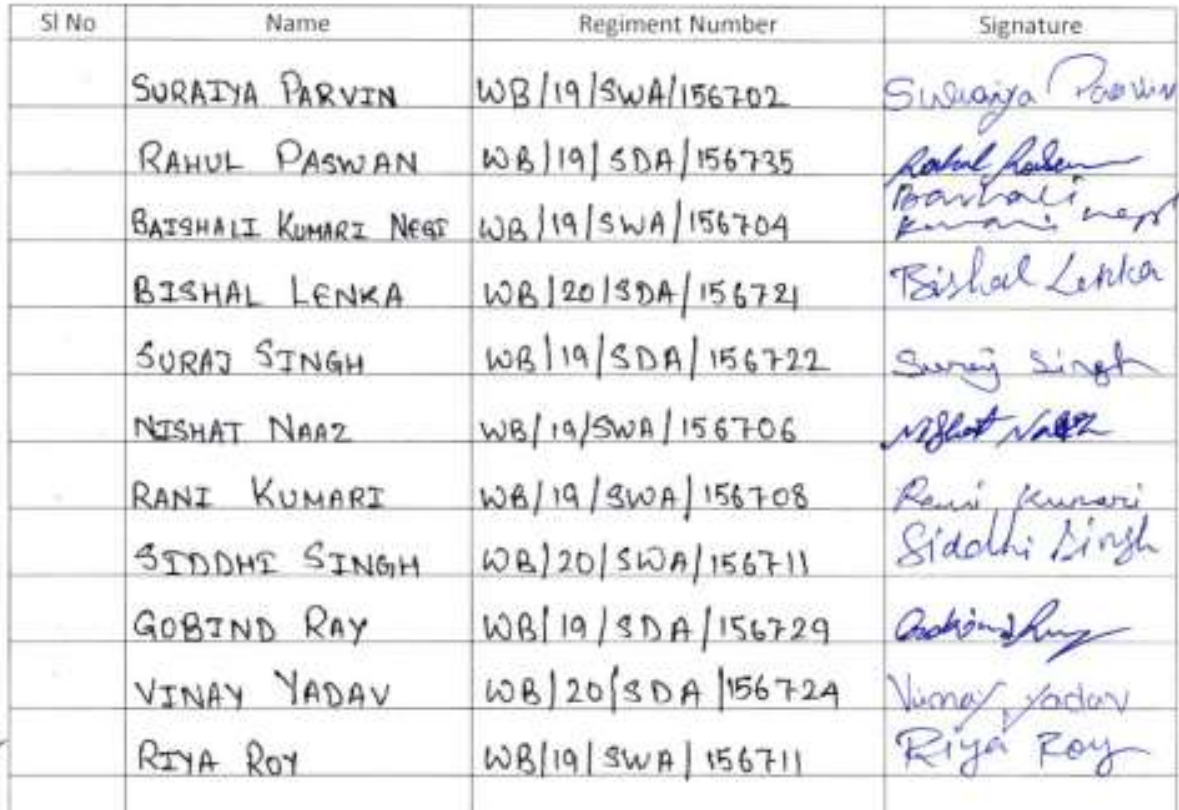 Sl No Name Regiment Number Signature
SURAIYA PARVIN WB/19/SWA/156702 Suraiya Parvin
RAHUL PASWAN WB/19/SDA/156735 Rahul
BAISHALI KUMARI NEGI WB/19/SWA/156704 Baishali Kumari Negi
BISHAL LENKA WB/20/SDA/156721 Bishal Lenka
SURAJ SINGH WB/19/SDA/156722 Suraj Singh
NISHAT NAAZ WB/19/SWA/156706 Nishat Naaz
RANI KUMARI WB/19/SWA/156708 Rani Kumari
SIDDHI SINGH WB/20/SWA/156711 Siddhi Singh
GOBIND RAY WB/19/SDA/156729
VINAY YADAV WB/20/SDA/156724 Vinay Yadav
RIYA ROY WB/19/SWA/156711 Riya Roy